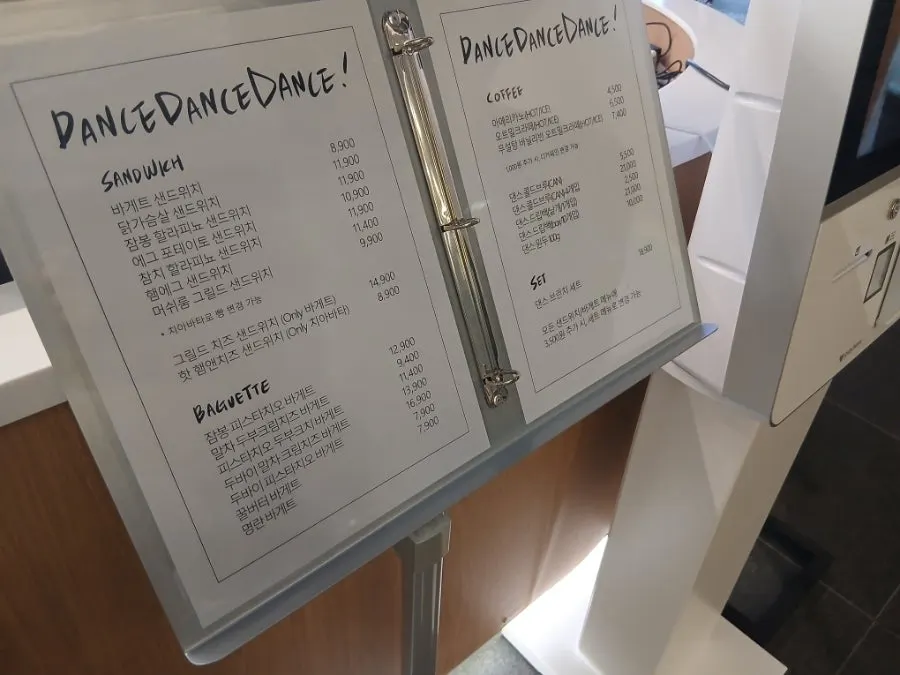 DANCEDANCEDANCE!
SANDWICH
바게트 샌드위치 8,900
닭가슴살 샌드위치 11,900
잠봉 할라피뇨 샌드위치 11,900
에그 포테이토 샌드위치 10,900
참치 할라피뇨 샌드위치 11,900
햄에그 샌드위치 11,400
머쉬룸 그릴드 샌드위치 9,900
* 치아바타로 빵 변경 가능
그릴드 치즈 샌드위치 (Only 바게트) 14,900
핫 햄앤치즈 샌드위치 (Only 치아바타) 8,900
BAGUETTE
잠봉 피스타치오 바게트 12,900
말차 두부크림치즈 바게트 9,400
피스타치오 두부크치 바게트 11,400
두바이 말차 크림치즈 바게트 13,900
두바이 피스타치오 바게트 16,900
꿀버터 바게트 7,900
명란 바게트 7,900
DANCEDANCEDANCE!
COFFEE
아메리카노(HOT/ICE) 4,500
오트밀크라떼(HOT/ICE) 6,500
무설탕 바닐라빈 오트밀크라떼(HOT/ICE) 7,400
1,000원 추가 시, 디카페인 변경 가능
댄스 콜드브루(CAN) 5,500
댄스 콜드브루(CAN)4개입 21,000
댄스 드립백 2,500
댄스 드립백 21,000
댄스 원두 10,000
SET
댄스 브런치 세트
모든 샌드위치/바게트 메뉴에
3,500원 추가 시, 세트 메뉴로 변경 가능